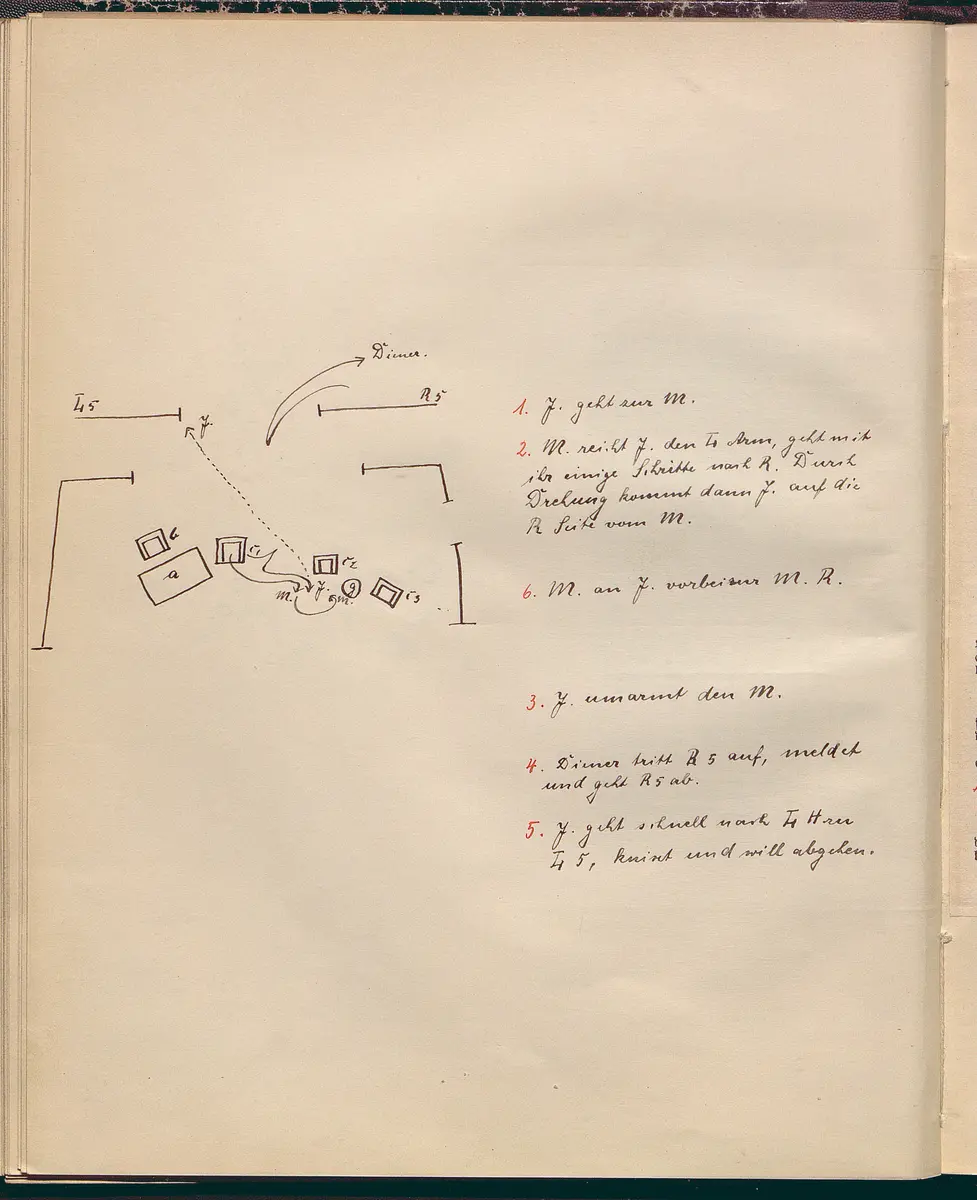 Diener.
L 5
R 5
J.
b
c1
a
c2
g
c3
M.
J.
M.
1. J. geht zur M.
2. M. reicht J. den L Arm, geht mit
ihr einige Schritte nach R. Durch
Drehung kommt dann J. auf die
R Seite vom M.
6. M. an J. vorbei zur M. R.
3. J. umarmt den M.
4. Diener tritt R 5 auf, meldet
und geht R 5 ab.
5. J. geht schnell nach L H zu
L 5, knixt und will abgehen.